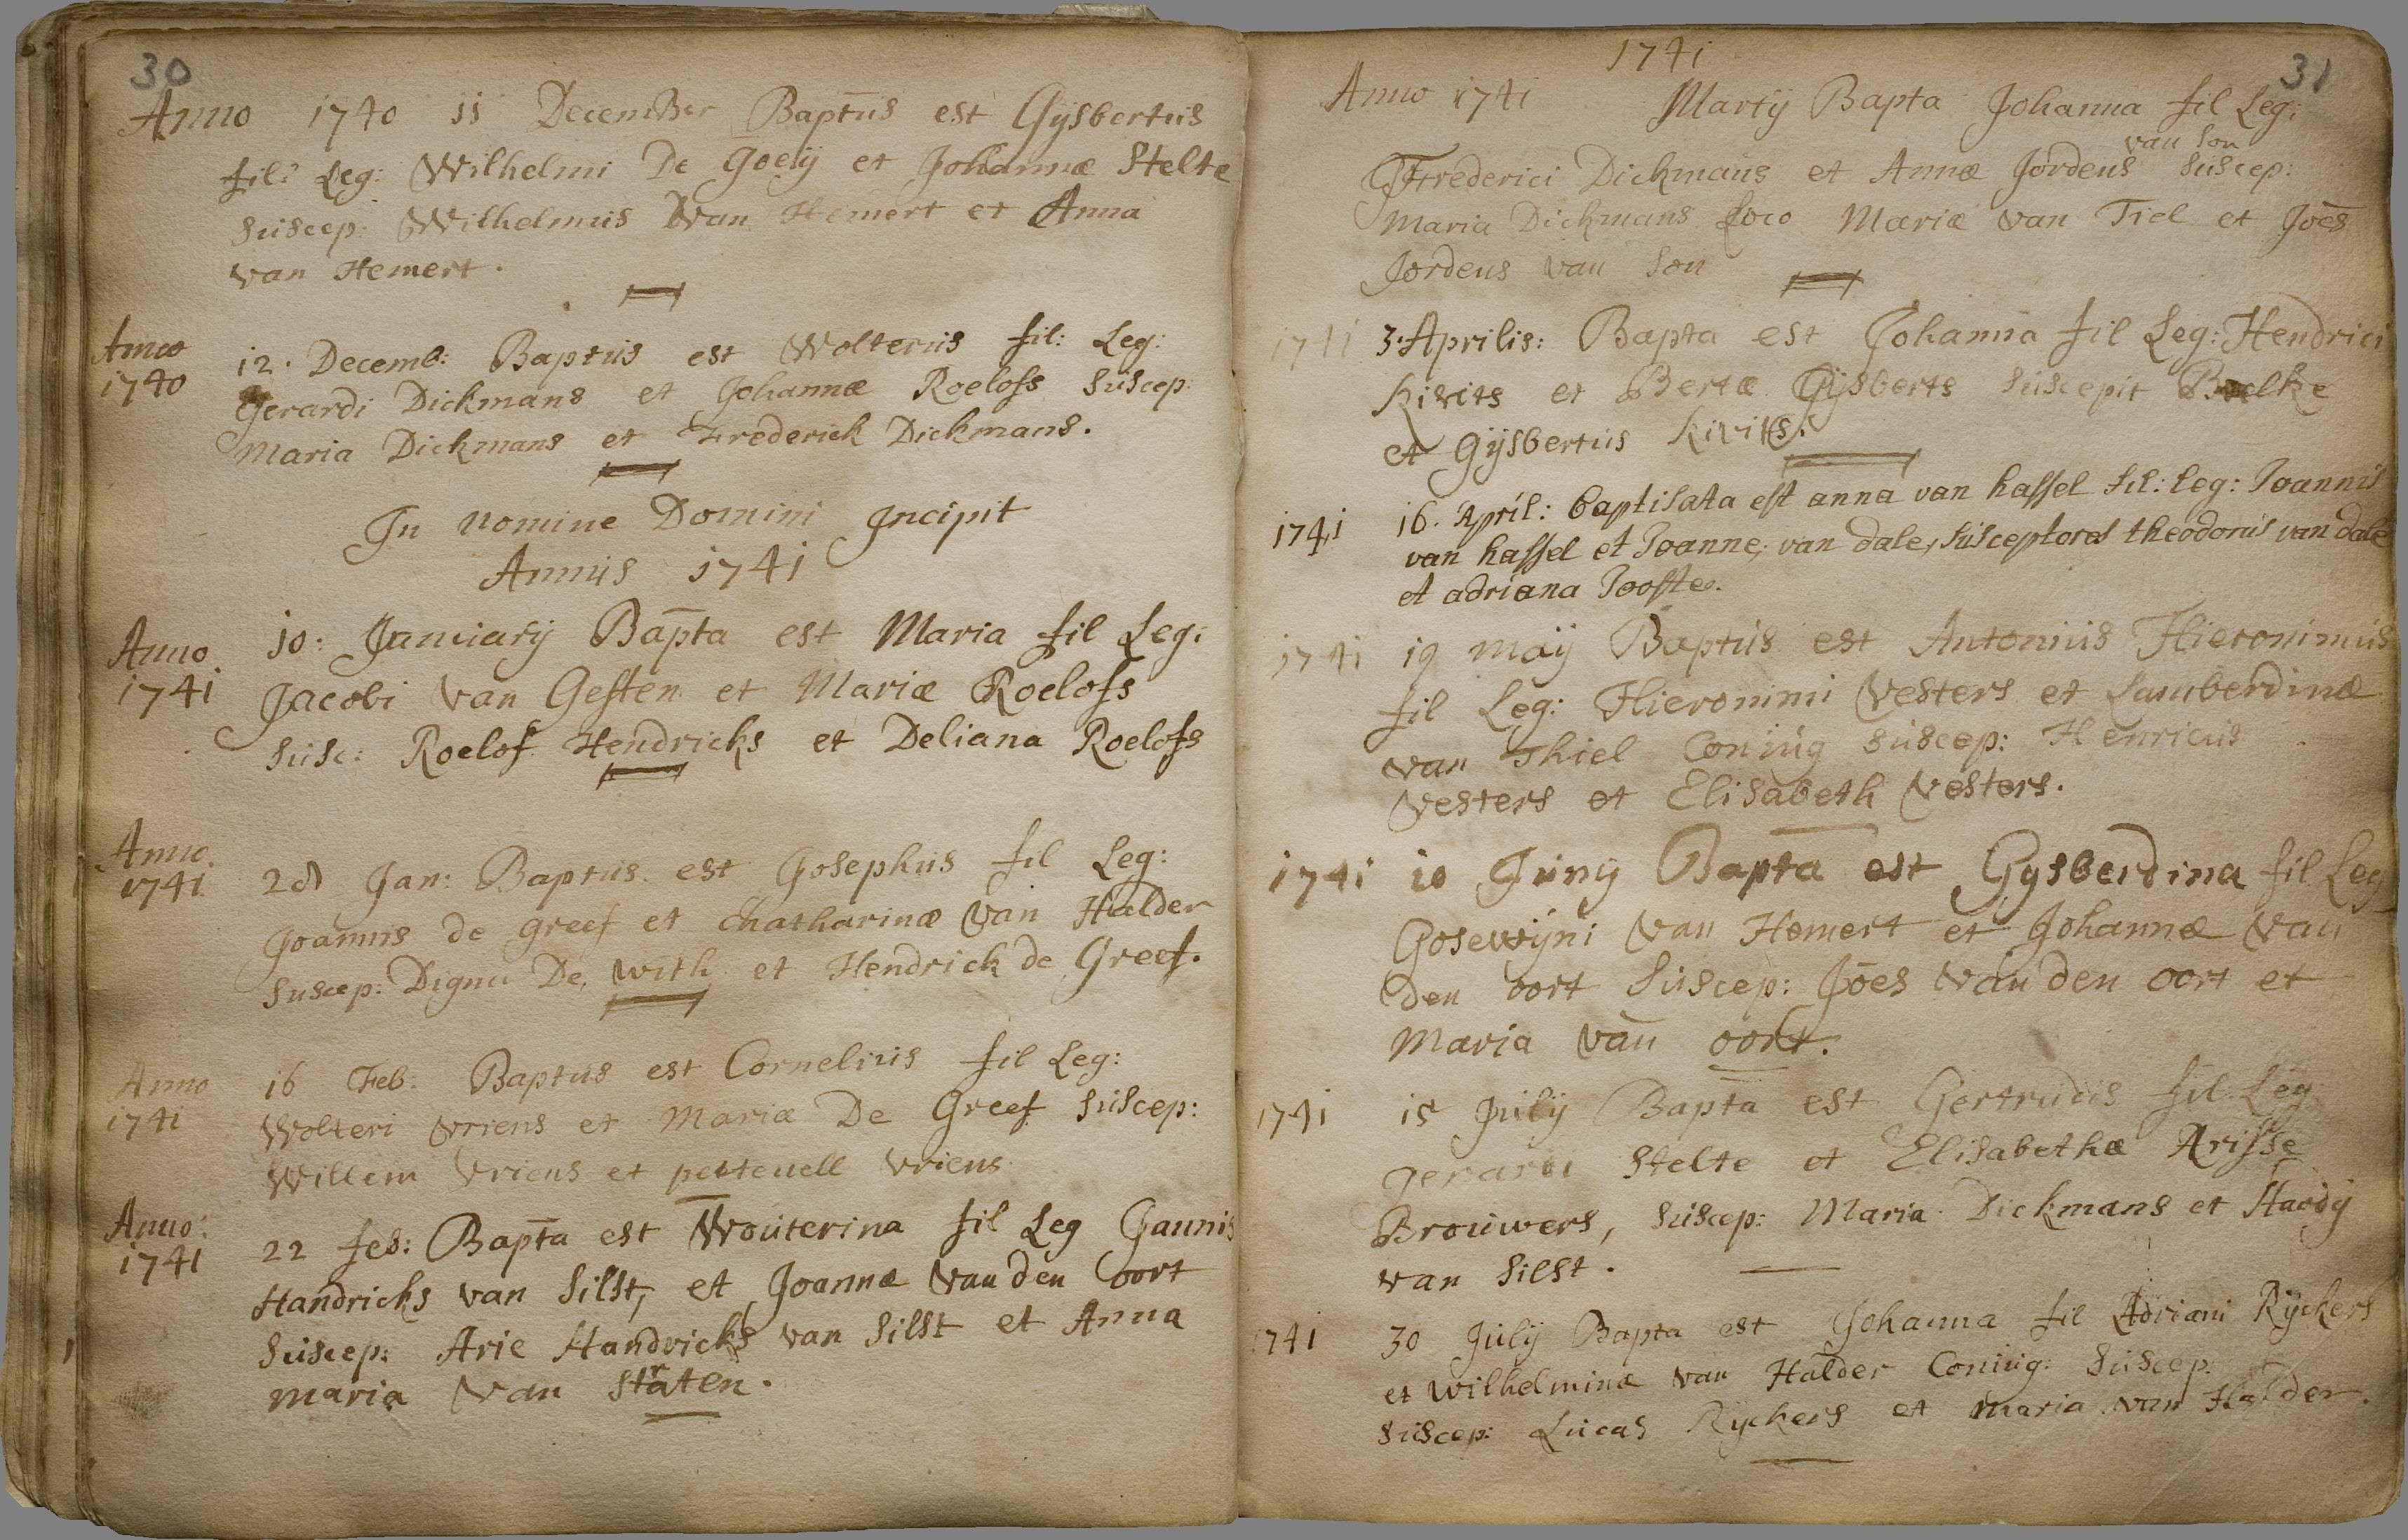 30
Anno 1740 11 December Baptus est Gijsbertus
fil: Leg: Wilhelmi De Goeij et Johannæ Stelte
suscep: Wilhelmus Van Hemert et Anna
van Hemert.
Anno 1740
12. Decemb: Baptus est Wolterus fil: Leg:
Gerardi Dickmans et Johannæ Roelofs suscep:
Maria Dickmans et Frederick Dickmans.
In nomine Domini Incipit
Annus 1741
Anno 1741
10: Januarij Bapta est Maria fil Leg:
Jacobi van Gesten et Mariæ Roelofs
susc: Roelof Hendricks et Deliana Roelofs
Anno 1741
28 Jan: Baptus est Josephus fil Leg:
Joannis de greef et Chatharinæ van Halder
suscep: Digna De with et Hendrick de Greef.
Anno 1741
16 Feb: Baptus est Cornelius fil Leg:
Wolteri vriens et Mariæ De Greef suscep:
Willem vriens et petenell vriens
Anno: 1741
22 feb: Bapta est Wouterina fil Leg Jannis
Handricks van Silst, et Joannæ van den oort
suscep: Arie Handricks van Silst et Anna
maria van straten.
1741
31
Anno 1741 Martij Bapta Johanna fil Leg:
van Son
Frederici Dickmans et Annæ Jordens suscep:
Maria Dickmans Loco Mariæ van Tiel et Joēs
Jordens van Son
1741 3. Aprilis: Bapta est Johanna fil Leg: Hendrici
Kivits et Bertæ Gijsberts suscepit
et Gijsbertus Kivits.
1741 16. April: baptisata est anna van hassel fil: leg: Joannis
van hassel et Joanne, van dale, susceptores theodorus van dale
et adriana Jooste.
1741 19 maij Baptus est Antonius Hieronimus
fil Leg: Hieronimi Vesters et Lamberdinæ
van Thiel Coniug suscep: Henricus
Vesters et Elisabeth Vesters.
1741 10 Junij Bapta est Gysberdina fil Leg
Gosewijni van Hemert et Johannæ van
den oort suscep: Joēs van den oort et
Maria van oort.
1741 15 Julij Bapta est Gertrudis fil Leg
gerardi Stelte et Elisabethæ Arisse
Brouwers, suscep: Maria Dickmans et Hardij
van Silst.
1741 30 Julij Bapta est Johanna fil Adriani Rijckers
et Wilhelminæ van Halder Coniug: suscep:
suscep: Lucas Rijckers et maria van Halder.